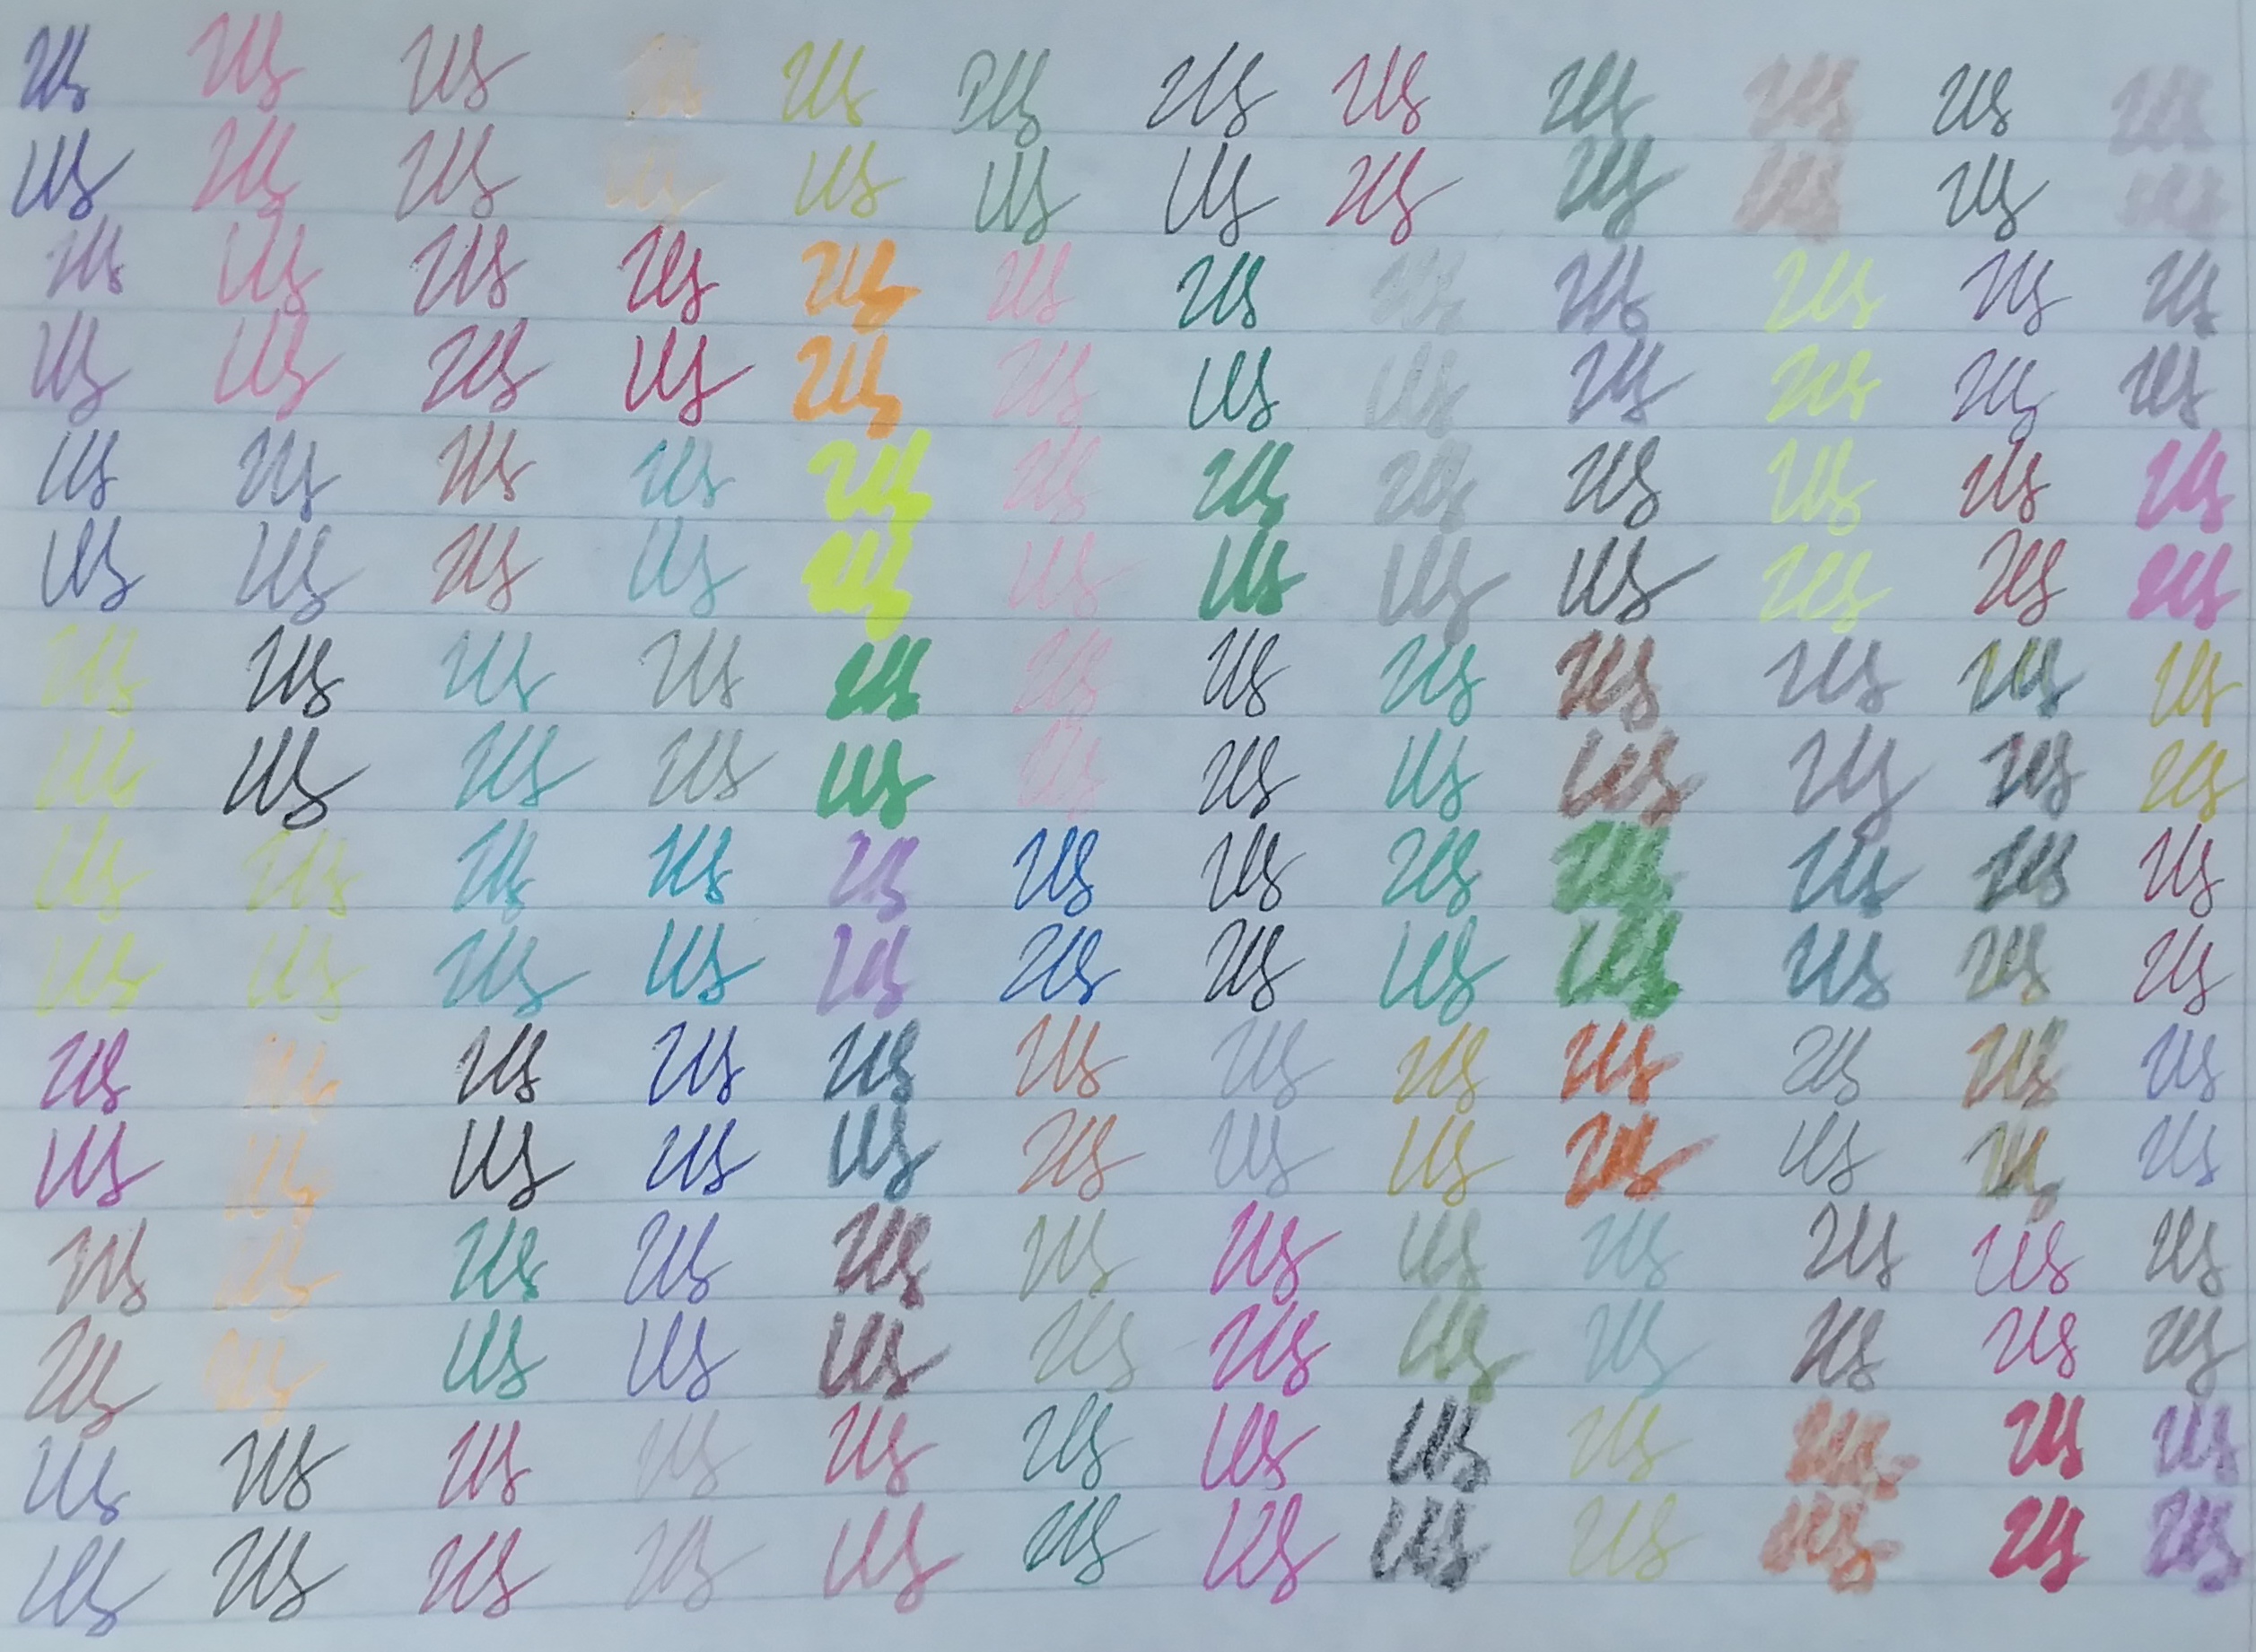 Us Us Us Us Us Us Us Us Us Us Us Us
Us Us Us Us Us Us Us Us Us Us Us Us
Us Us Us Us Us Us Us Us Us Us Us Us
Us Us Us Us Us Us Us Us Us Us Us Us
Us Us Us Us Us Us Us Us Us Us Us Us
Us Us Us Us Us Us Us Us Us Us Us Us
Us Us Us Us Us Us Us Us Us Us Us Us
Us Us Us Us Us Us Us Us Us Us Us Us
Us Us Us Us Us Us Us Us Us Us Us Us
Us Us Us Us Us Us Us Us Us Us Us Us
Us Us Us Us Us Us Us Us Us Us Us Us
Us Us Us Us Us Us Us Us Us Us Us Us
Us Us Us Us Us Us Us Us Us Us Us Us
Us Us Us Us Us Us Us Us Us Us Us Us
Us Us Us Us Us Us Us Us Us Us Us Us
Us Us Us Us Us Us Us Us Us Us Us Us